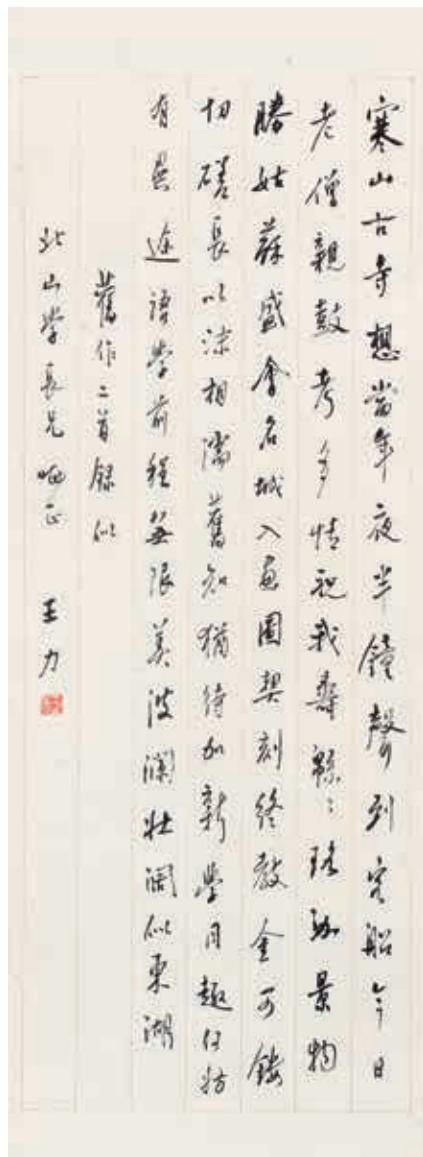 寒山古寺想當年夜半鐘聲到客船今日
老僧親鼓考多情祝我壽緜〻珞珈景物
勝姑蘇盛會名城入畫圖契刻終教金可鏤
切磋長以沫相濡舊知猶待加新學同趣何妨
有異途語學前程無限美波瀾壯闊似東湖
舊作二首錄似
北山學長兄哂正 王力